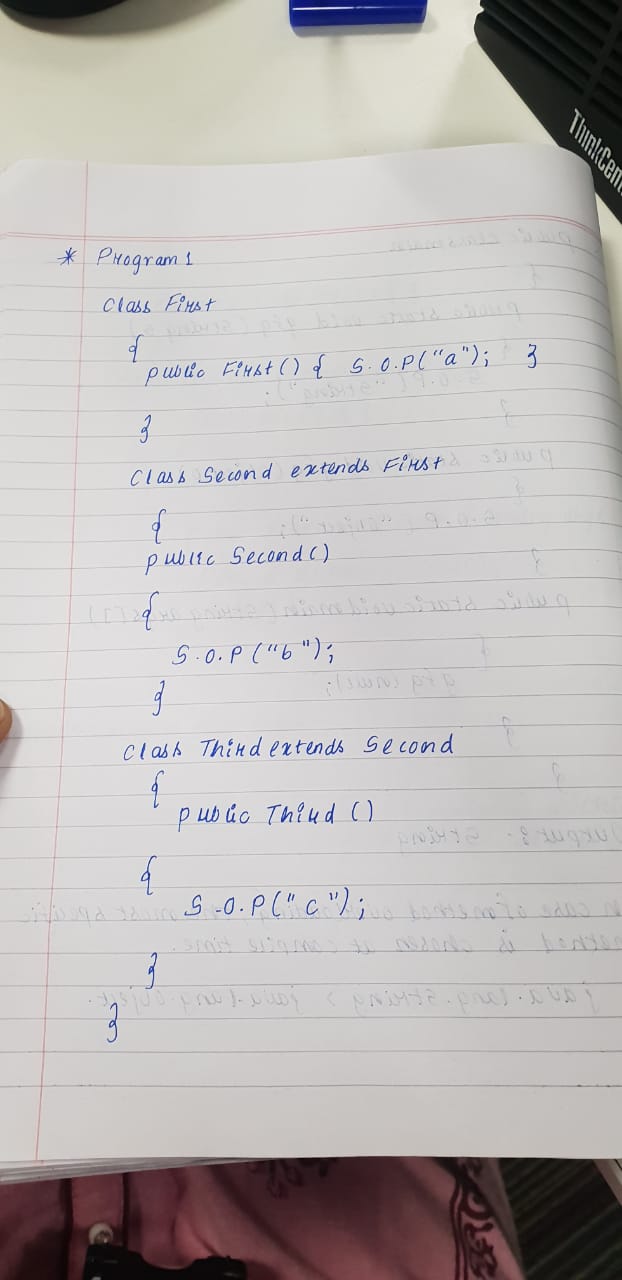 ThinkCen
* Program 1
Class First
{
public First() { S.O.P("a"); }
}
Class Second extends First
{
public Second()
{
S.O.P("b");
}
Class Third extends Second
{
public Third ()
{
S.O.P("c");
}
}